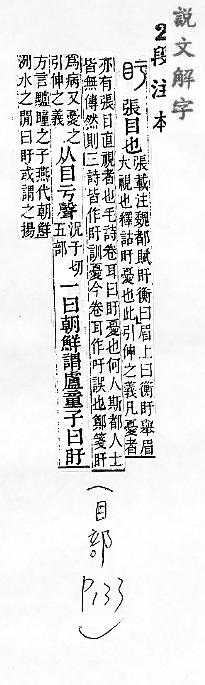 說文解字
2段注本
盱 張目也 張載注魏都賦盱衡曰眉上曰衡盱舉眉
大視也釋詁盱憂也此引伸之義凡憂者
亦有張目直視者也毛詩卷耳曰盱憂也何人斯都人士
皆無傳然則三詩皆作盱訓憂今卷耳作吁誤也鄭箋盱
爲病又憂之
引伸之義 从目亏聲 況于切
五部 一曰朝鮮謂盧童子曰盱
方言矑瞳之子燕代朝鮮
洌水之閒曰盱或謂之揚
(目部 P.133)